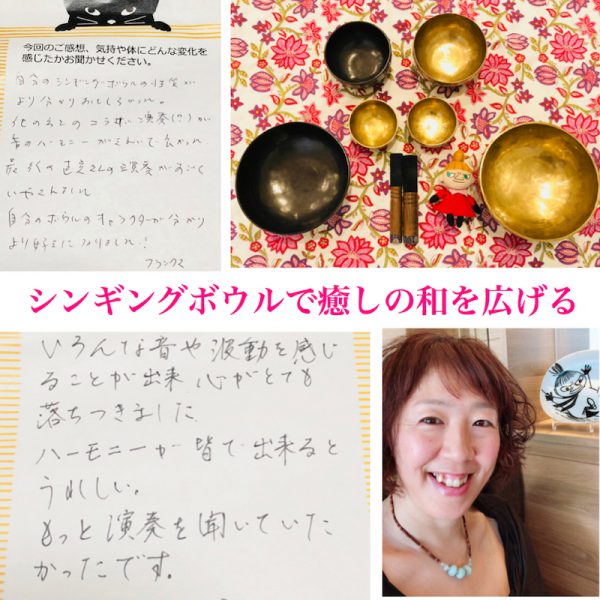 今回のご感想、気持や体にどんな変化を
感じたかお聞かせください。
自分のシンギングボウルの性質が
より分かりおもしろかった。
他の方とのコラボ演奏(?)が
音のハーモニーがきれいで良かった。
最後の
演奏がすごく
いやされました
自分のボウルのキャラクターが分かり
より好きになりました!
フランクス
シンギングボウルで癒しの和を広げる
いろんな音や波動を感じ
ることが出来 心がとても
落ちつきました
ハーモニーが皆で出来ると
うれしい。
もっと演奏を聞いていた
かったです。